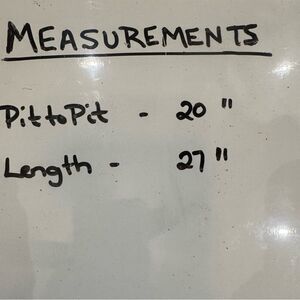 MEASUREMENTS
Pit to Pit - 20 "
Length - 27 "